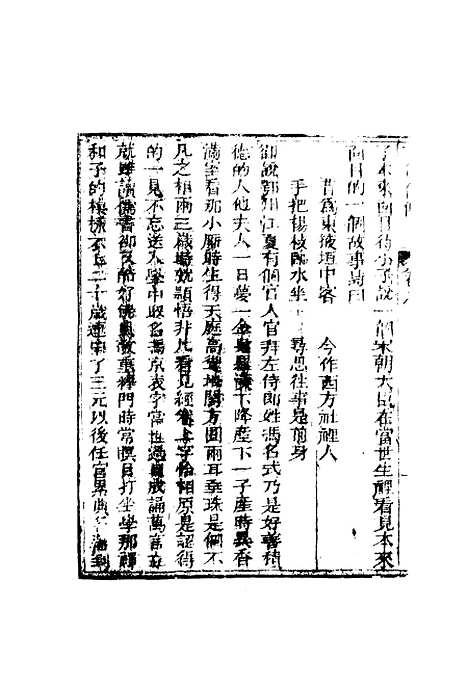 了本來面目待小子說一個宋朝大臣在當世生裡看見本來
面目的一個故事詩曰
昔爲東掖垣中客　今作西方社裡人
手把楊枝臨水坐　尋思往事是前身
却說鄂州江夏有個官人官拜左侍郎姓馮名式乃是好善積
德的人他夫人一日夢一金身羅漢下降產下一子產時異香
滿室看那小廝時生得天庭高聳地閣方圓兩耳垂珠是個不
凡之相兩三歲時就穎悟非凡看見經卷上字恰相原是認得
的一見不忘送入學中取名馮京表字當世過目成誦萬言立
就雖讀儒書却又酷好佛典敬重釋門時常瞑目打坐學那禪
和子的模樣不上二十歲連中了三元以後任官累典